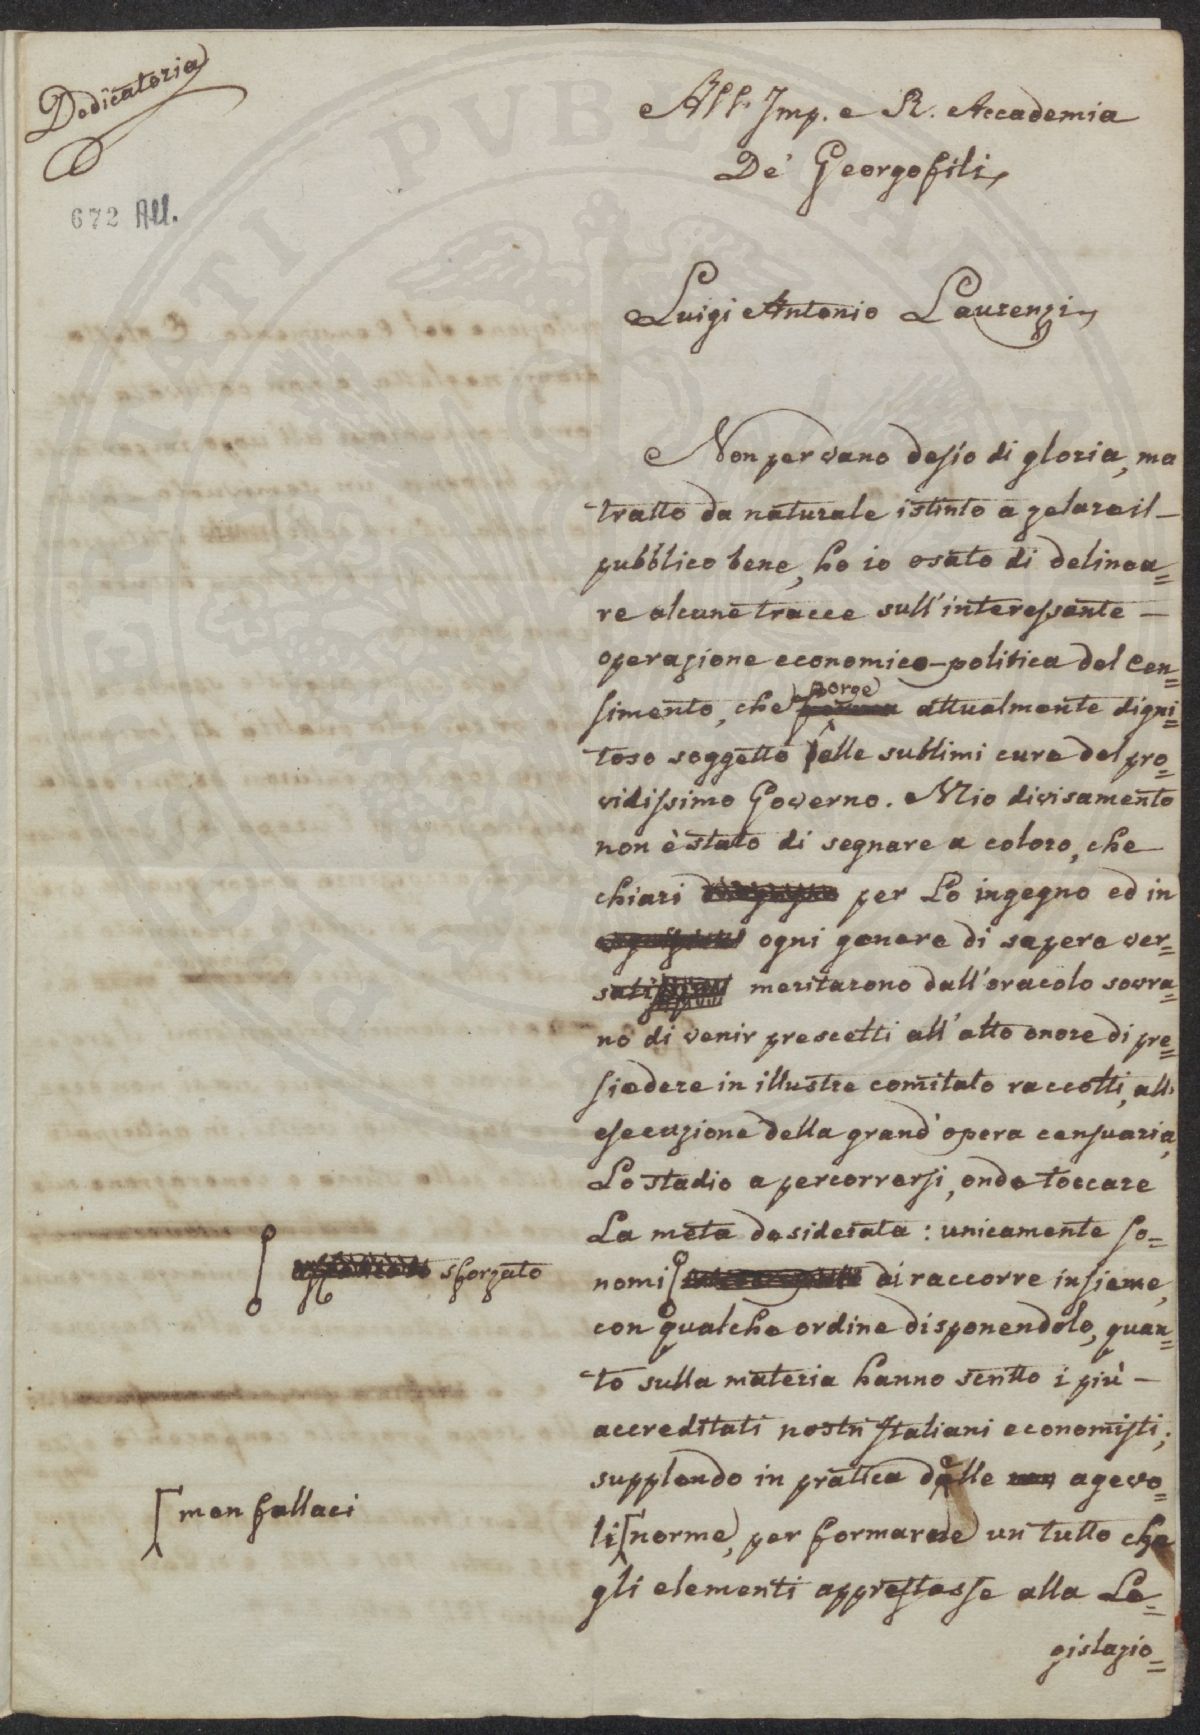 Dedicatoria
672 All.
All' Imp. e R. Accademia
De' Georgofili
Luigi Antonio Laurenzi
Non per vano desio di gloria, ma
tratto da naturale istinto a zelare il
pubblico bene, ho io osato di delinea=
re alcune tracce sull'interessante
operazione economico-politica del Cen=
simento, che porge attualmente digni=
toso soggetto alle sublimi cure del pro=
vidissimo Governo. Mio divisamento
non è stato di segnare a coloro, che
chiari per lo ingegno ed in
ogni genere di sapere ver=
sati meritarono dall'oracolo sovra=
no di venir prescelti all'alto onore di pre=
siedere in illustre comitato raccolti, all'
esecuzione della grand'opera censuaria,
Lo stadio a percorrersi, onde toccare
La meta desiderata: unicamente so=
nomi di raccorre insieme,
sforzato
con qualche ordine disponendolo, quan=
to sulla materia hanno scritto i più
accreditati nostri Italiani economisti;
supplendo in pratica delle agevo=
li norme, per formarne un tutto che
men fallaci
gli elementi apprestasse alla Le=
gislazio=